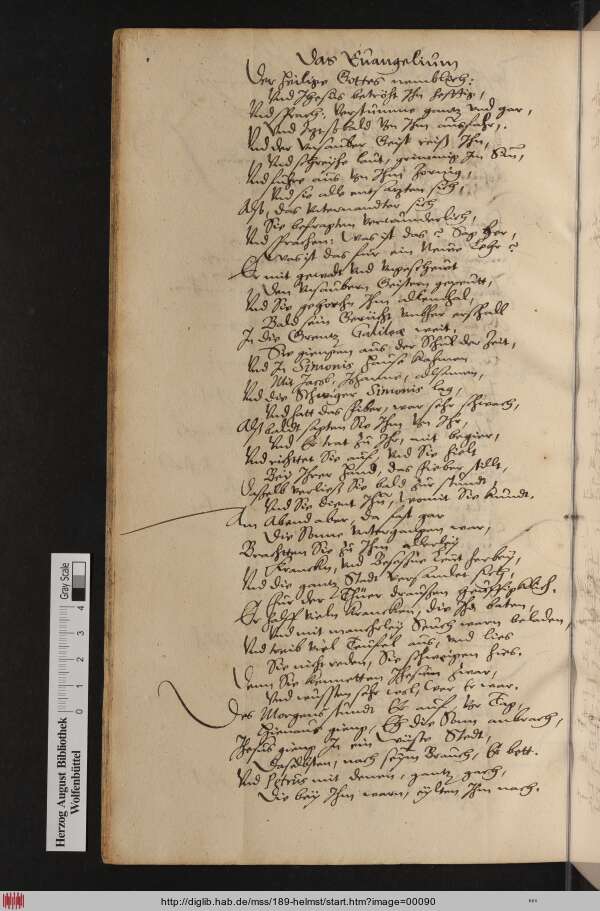 Das Euangelium
Der Heilige Gottes
Vnd Jhesus betroht Jhn hefftig,
Vnd sprach: Verstumme gantz vnd gar,
Vnd bald von Jhm ausfahr,
Vnd der Vnsauber Geist reist Jhn,
Vnd schreyhe laut, grimmig Jn Sin,
Vnd fuhre aus von Jhm zornig,
Vnd sie alle entsatzten sich,
Also, das Vnternander sich
Sie befragten verwunderlich,
Vnd sprachen: Was ist das? Sag her,
Was ist das fur ein Newe Lehr?
Er mit gewalt vnd vngeschewt
Den Vnsaubern Geistern gepeutt,
Vnd Sie gehorchn Jhm
Bald sein Gerucht vmbher erschall
Jn die Grentz Galilea weit,
Sie giengen aus der Schul der Zeit,
Vnd Jn Simonis Hause kahmen
Mit Jacob, Johanne,
Vnd die Schwiger Simonis lag,
Vnd hatt das Fiber, war sehr schwach,
Als baldt sagten Sie Jhm von Jhr,
Vnd Er trat zu Jhr, mit begier,
Vnd richttet Sie auf, vnd Sie hielt
Bey Jhrer Hand, das Fieber stillt,
Dasselb verliess Sie bald zur stundt,
Vnd Sie dient Jhn, womit Sie kundt.
Am Abend aber, da fast gar
Die Sonne vntergangen war,
Brachtten Sie zu Jhm allerley
Krancken, vnd Besessne Leut herbey,
Vnd die gantz Stadt versamlet sich,
Fur der Thuer draussen
Er halff vieln Krancken, die Jhn baten,
Vnd mit mancherley Seuch warn beladen,
Vnd treib viel Teufel aus, vnd lies
Sie nicht reden, Sie schweigen hies.
Denn Sie kennetten Jhesum zwar,
Vnd wussten sehr wol, wer Er war.
Des Morgens stund Er auf, vor Tag,
Hienaus gieng, Eh die Sonn anbrach,
Jhesus gieng Jn ein wuste Stedt,
Daselbsten, nach seym Brauch, Er bett.
Vnd Petrus mit denen, gantz gach,
Die bey Jhm warn, eylten Jhm nach.
Herzog August Bibliothek
Wolfenbüttel
0 1 2 3 4
Gray Scale
http://diglib.hab.de/mss/189-helmst/start.htm?image=00090